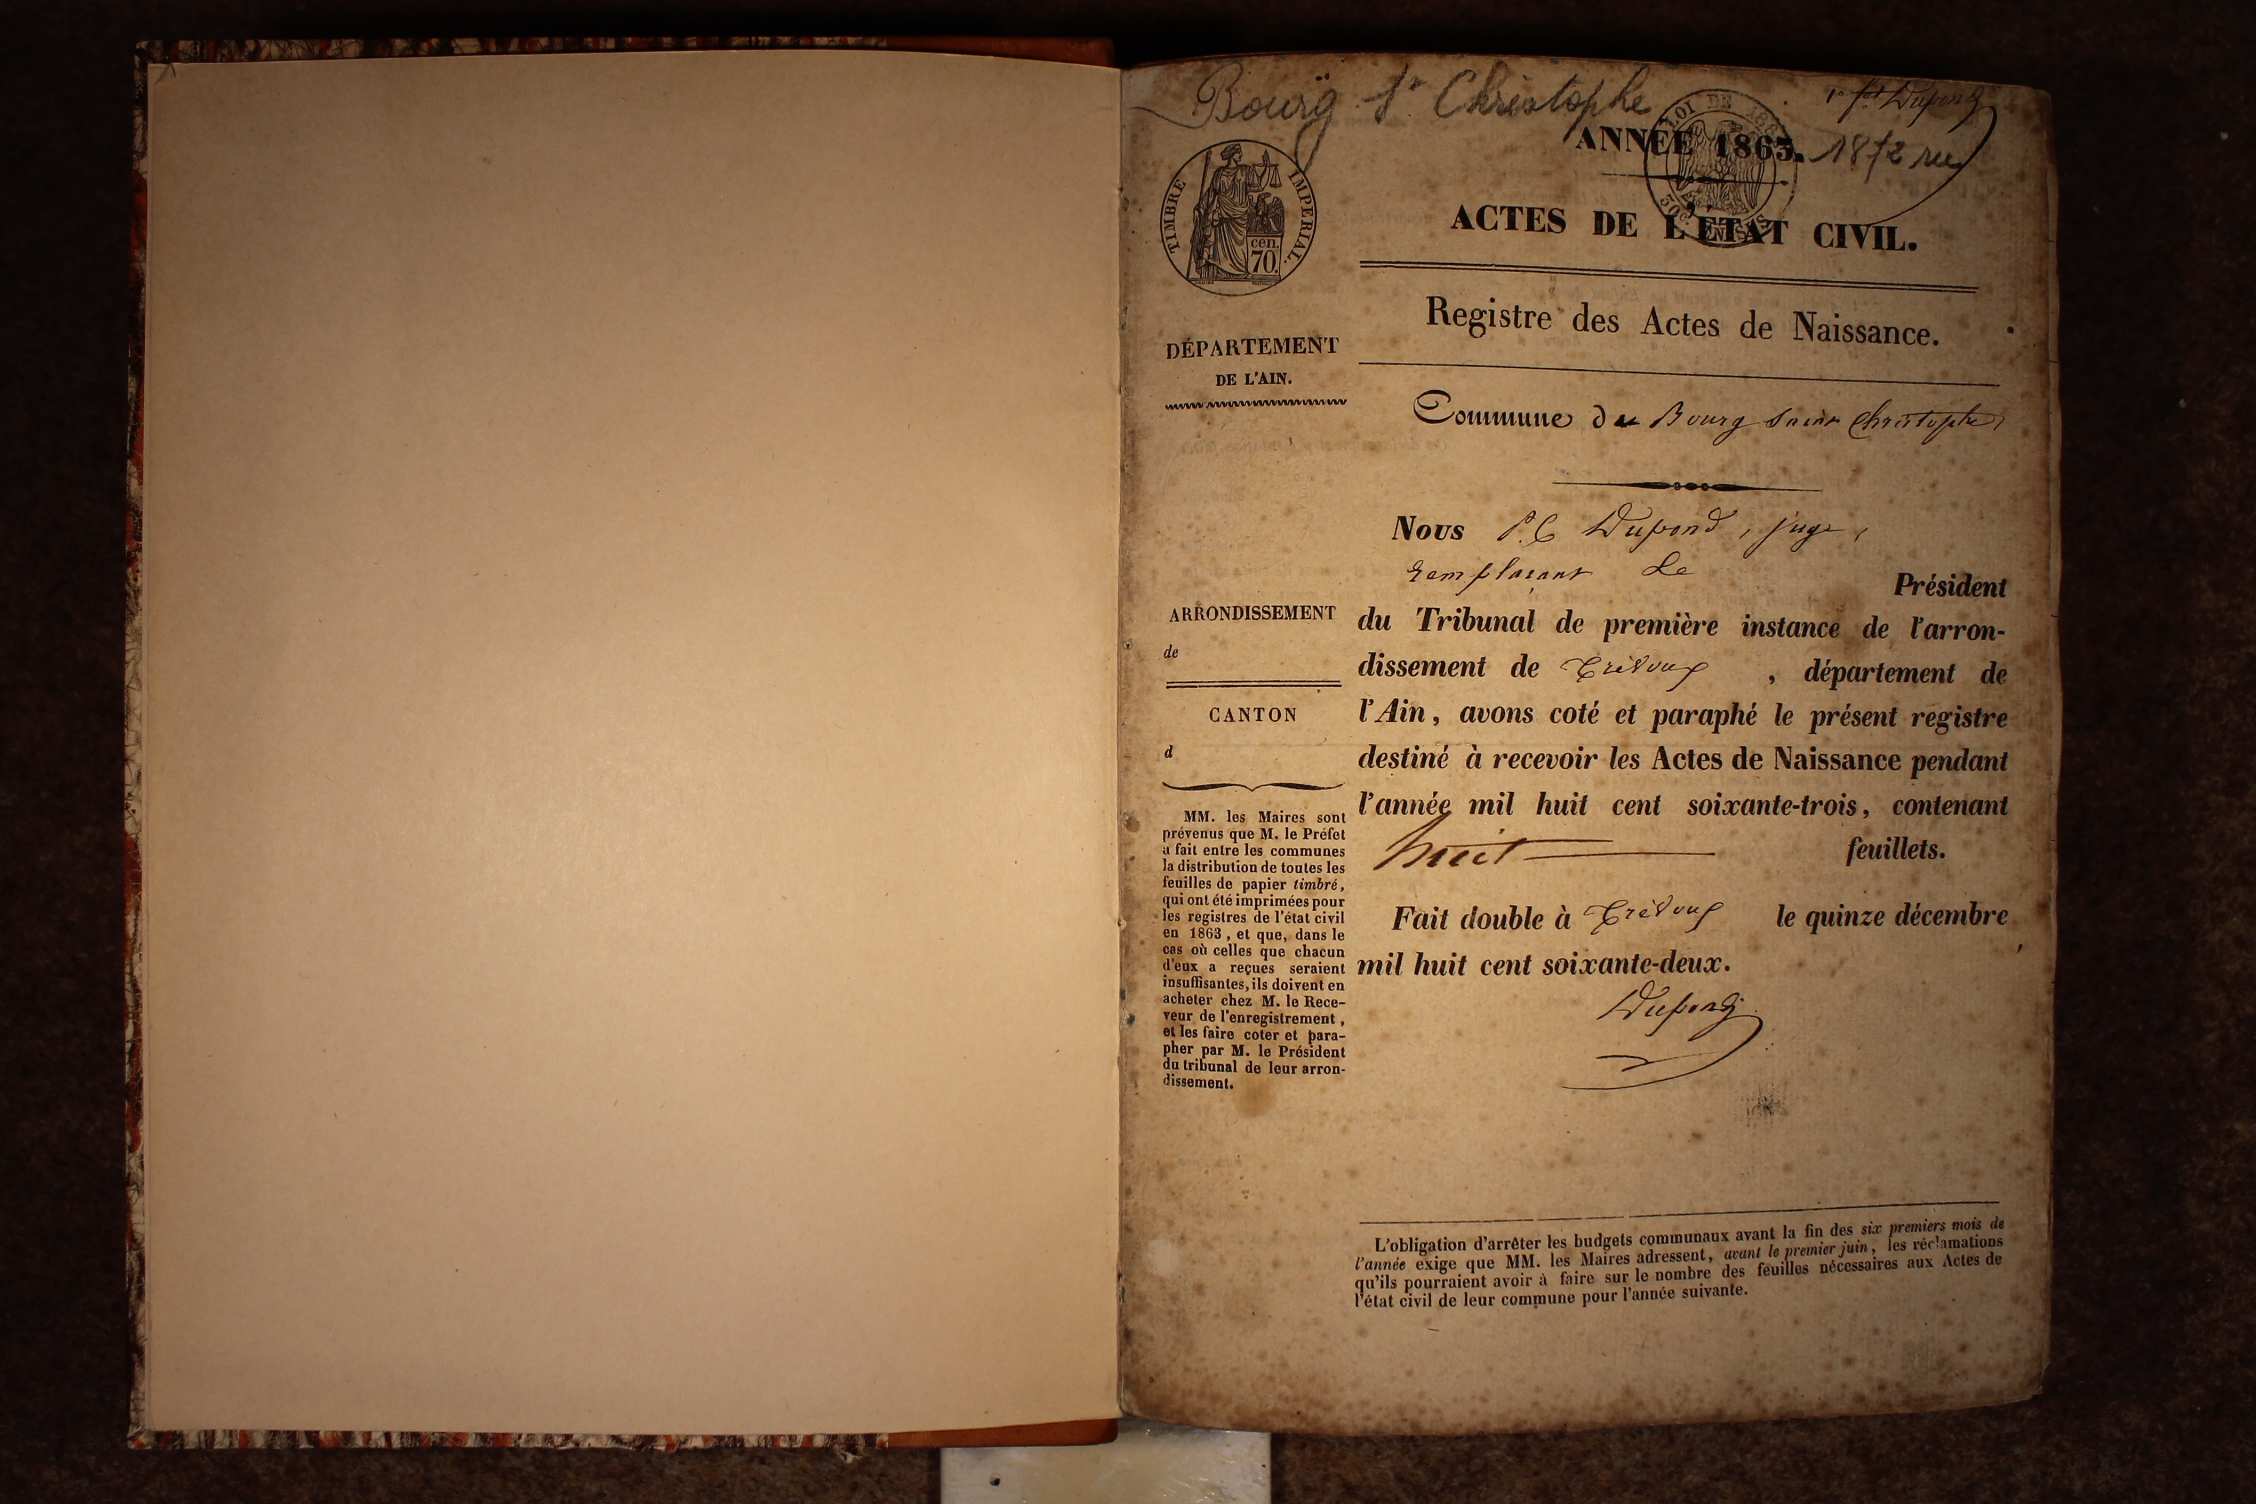 Bourg St Christophe
1er ft Dupond
ANNÉE 1863.
1872
LOI DE
TIMBRE IMPERIAL.
cen.
70.
ACTES DE L'ÉTAT CIVIL.
Registre des Actes de Naissance.
DÉPARTEMENT
DE L'AIN.
Commune de Bourg Saint Christophe
Nous P. C Dupond, juge,
remplaçant le Président
du Tribunal de première instance de l'arron-
dissement de Trévoux , département de
l'Ain, avons coté et paraphé le présent registre
destiné à recevoir les Actes de Naissance pendant
l'année mil huit cent soixante-trois, contenant
huit feuillets.
Fait double à Trévoux le quinze décembre
mil huit cent soixante-deux.
Dupond
ARRONDISSEMENT
de
CANTON
d
MM. les Maires sont
prévenus que M. le Préfet
a fait entre les communes
la distribution de toutes les
feuilles de papier timbré,
qui ont été imprimées pour
les registres de l'état civil
en 1863, et que, dans le
cas où celles que chacun
d'eux a reçues seraient
insuffisantes, ils doivent en
acheter chez M. le Rece-
veur de l'enregistrement,
et les faire coter et para-
pher par M. le Président
du tribunal de leur arron-
dissement.
L'obligation d'arrêter les budgets communaux avant la fin des six premiers mois de
l'année exige que MM. les Maires adressent, avant le premier juin, les réclamations
qu'ils pourraient avoir à faire sur le nombre des feuilles nécessaires aux Actes de
l'état civil de leur commune pour l'année suivante.